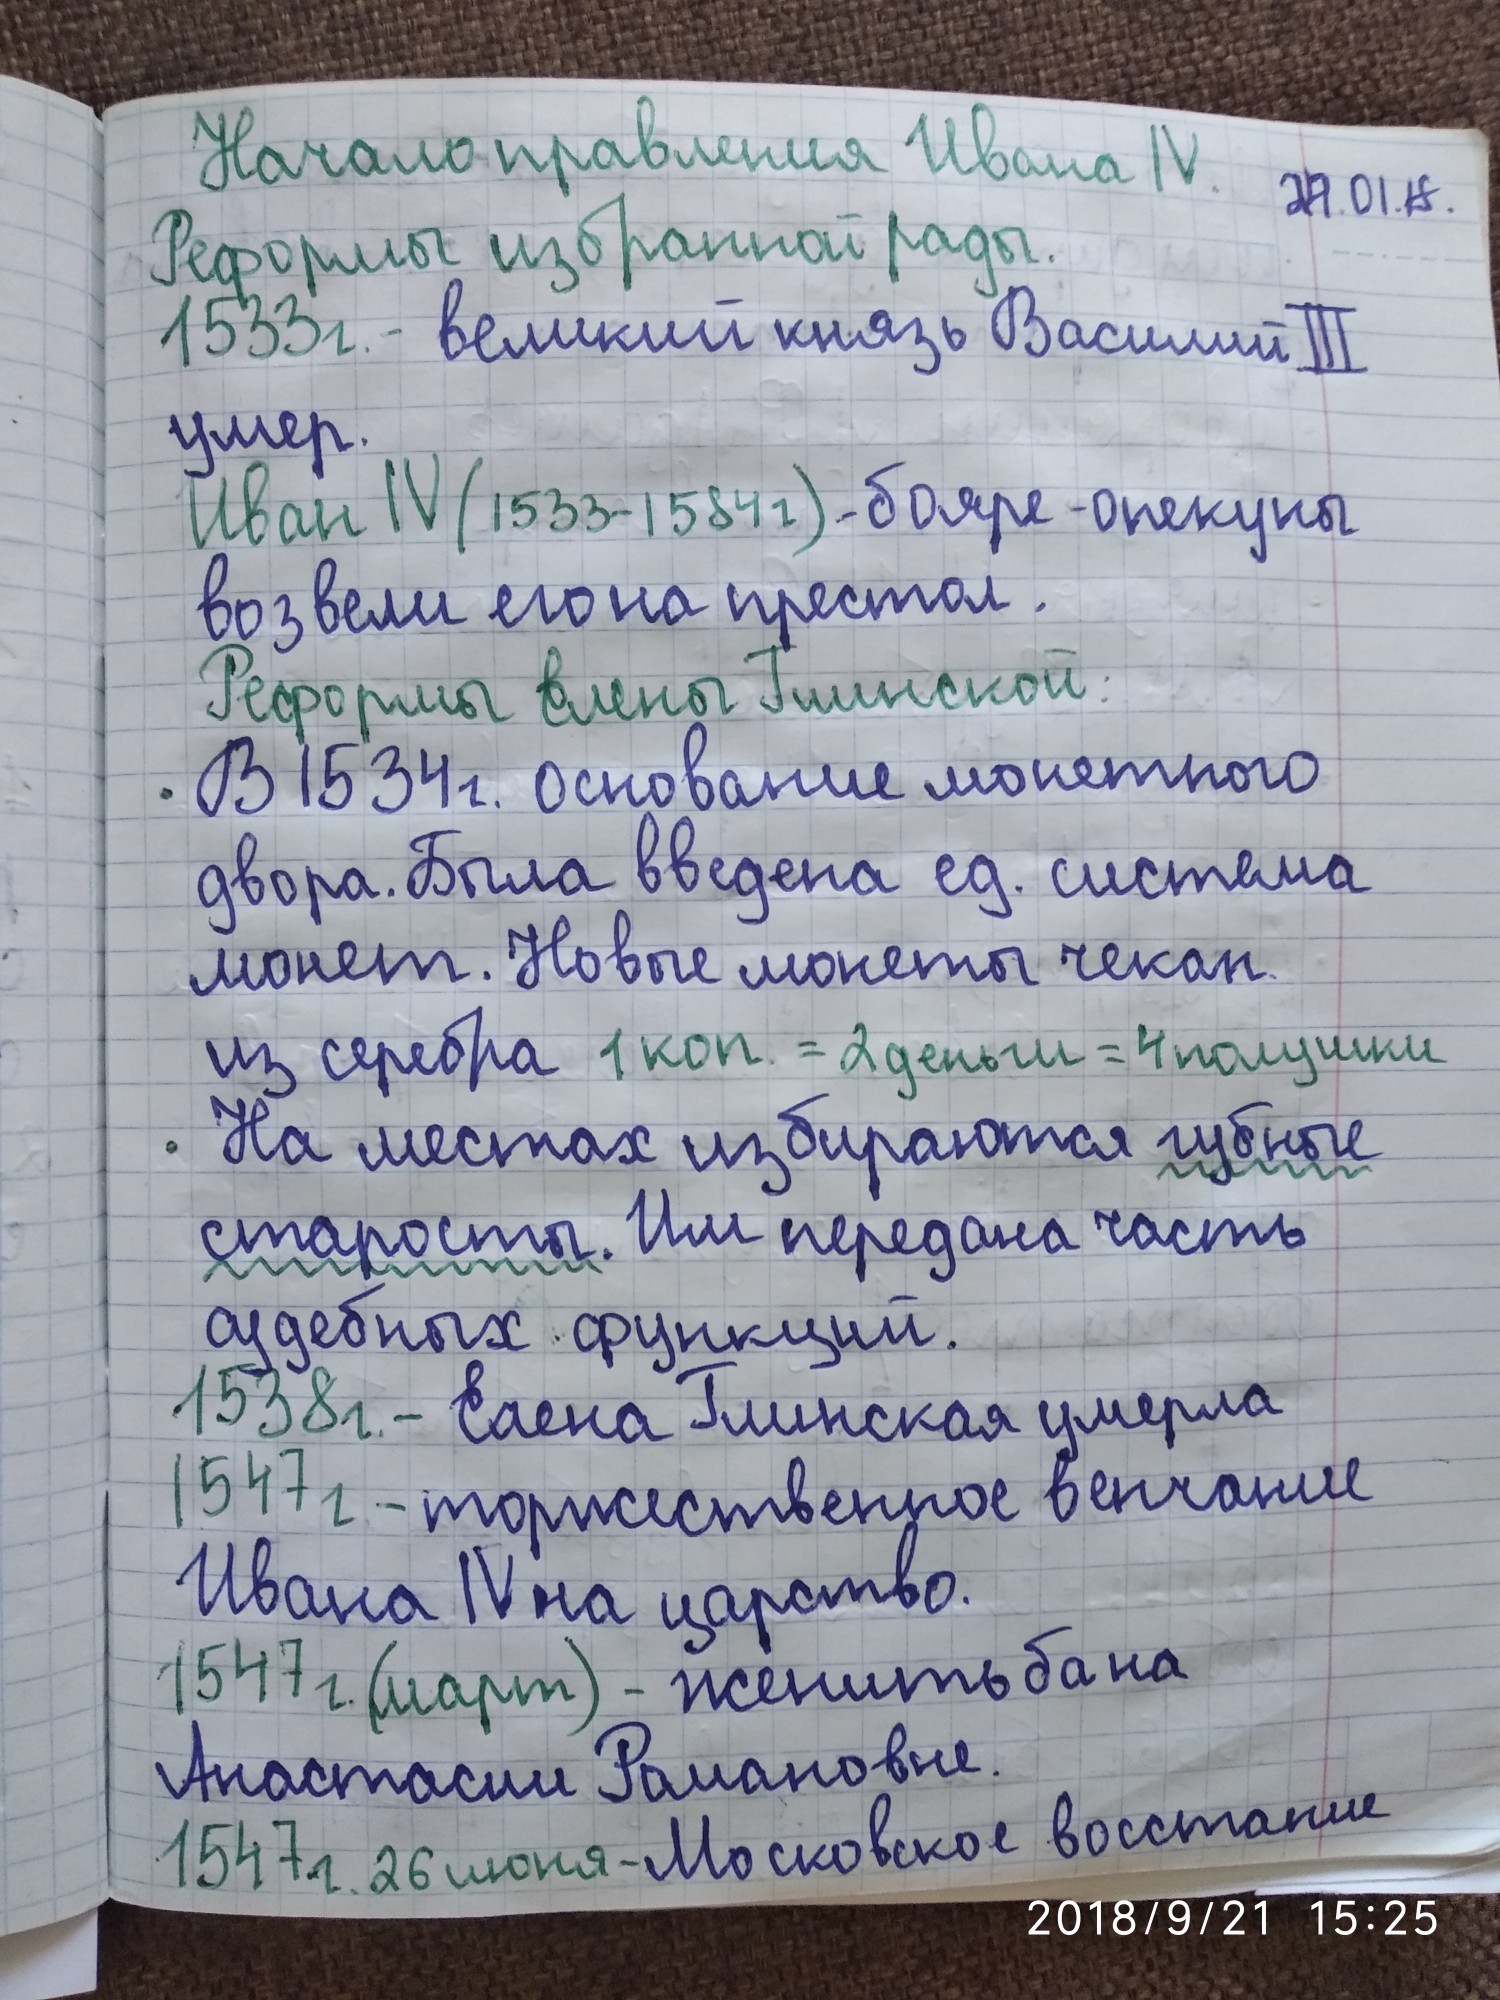 Начало правления Ивана IV.
Реформы избранной рады.
1533г. - великий князь Василий III
умер.
Иван IV (1533-1584г) - бояре - опекуны
возвели его на престол.
Реформы Елены Глинской:
· В 1534г. основание монетного
двора. Была введена ед. система
монет. Новые монеты чекан.
из серебра 1 коп. = 2 деньги = 4 полушки
· На местах избираются губные
старосты. Им передана часть
судебных функций.
1538г. - Елена Глинская умерла
1547г. - торжественное венчание
Ивана IV на царство.
1547г. (март) - женитьба на
Анастасии Рамановне.
1547г. 26 июня - Московское восстание
2018/9/21 15:25